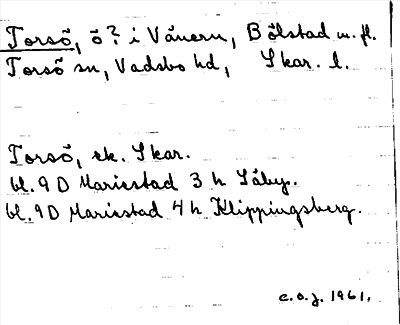 Torsö, ö? i Vänern, Bölstad m. fl.
Torsö sn, Vadsbo hd, Skar. l.
Torsö, ek. Skar.
bl. 9D Mariestad 3 h Säby.
bl. 9D Mariestad 4 h Klippingsberg.
c.o.j. 1961.